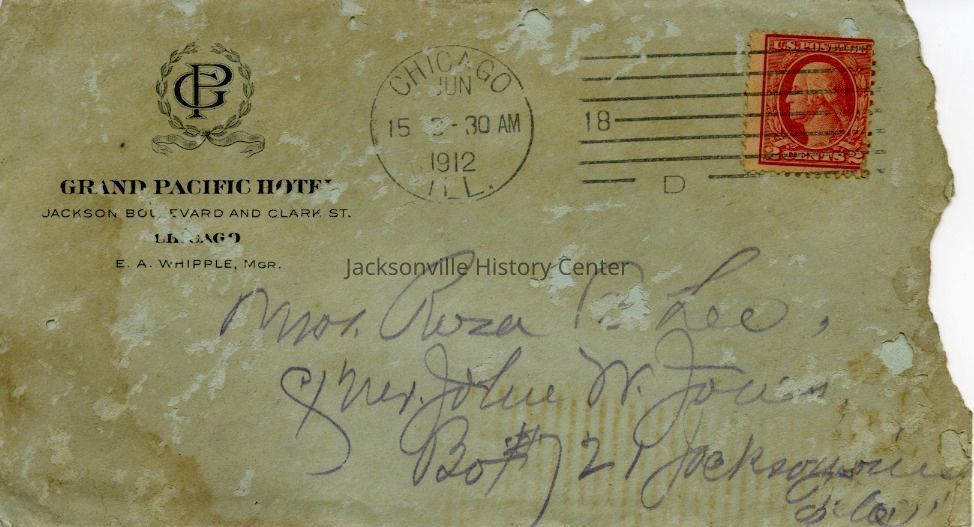 GP
GRAND PACIFIC HOTEL
JACKSON BOULEVARD AND CLARK ST.
CHICAGO
E. A. WHIPPLE, MGR.
CHICAGO
JUN
15 - 30 AM
1912
ILL.
18
D
U.S. POSTAGE
2 CENTS 2
Jacksonville History Center
Mrs. Rosa Lee,
c/o Mr. John W. Jones,
Bo# 721 Jacksonville